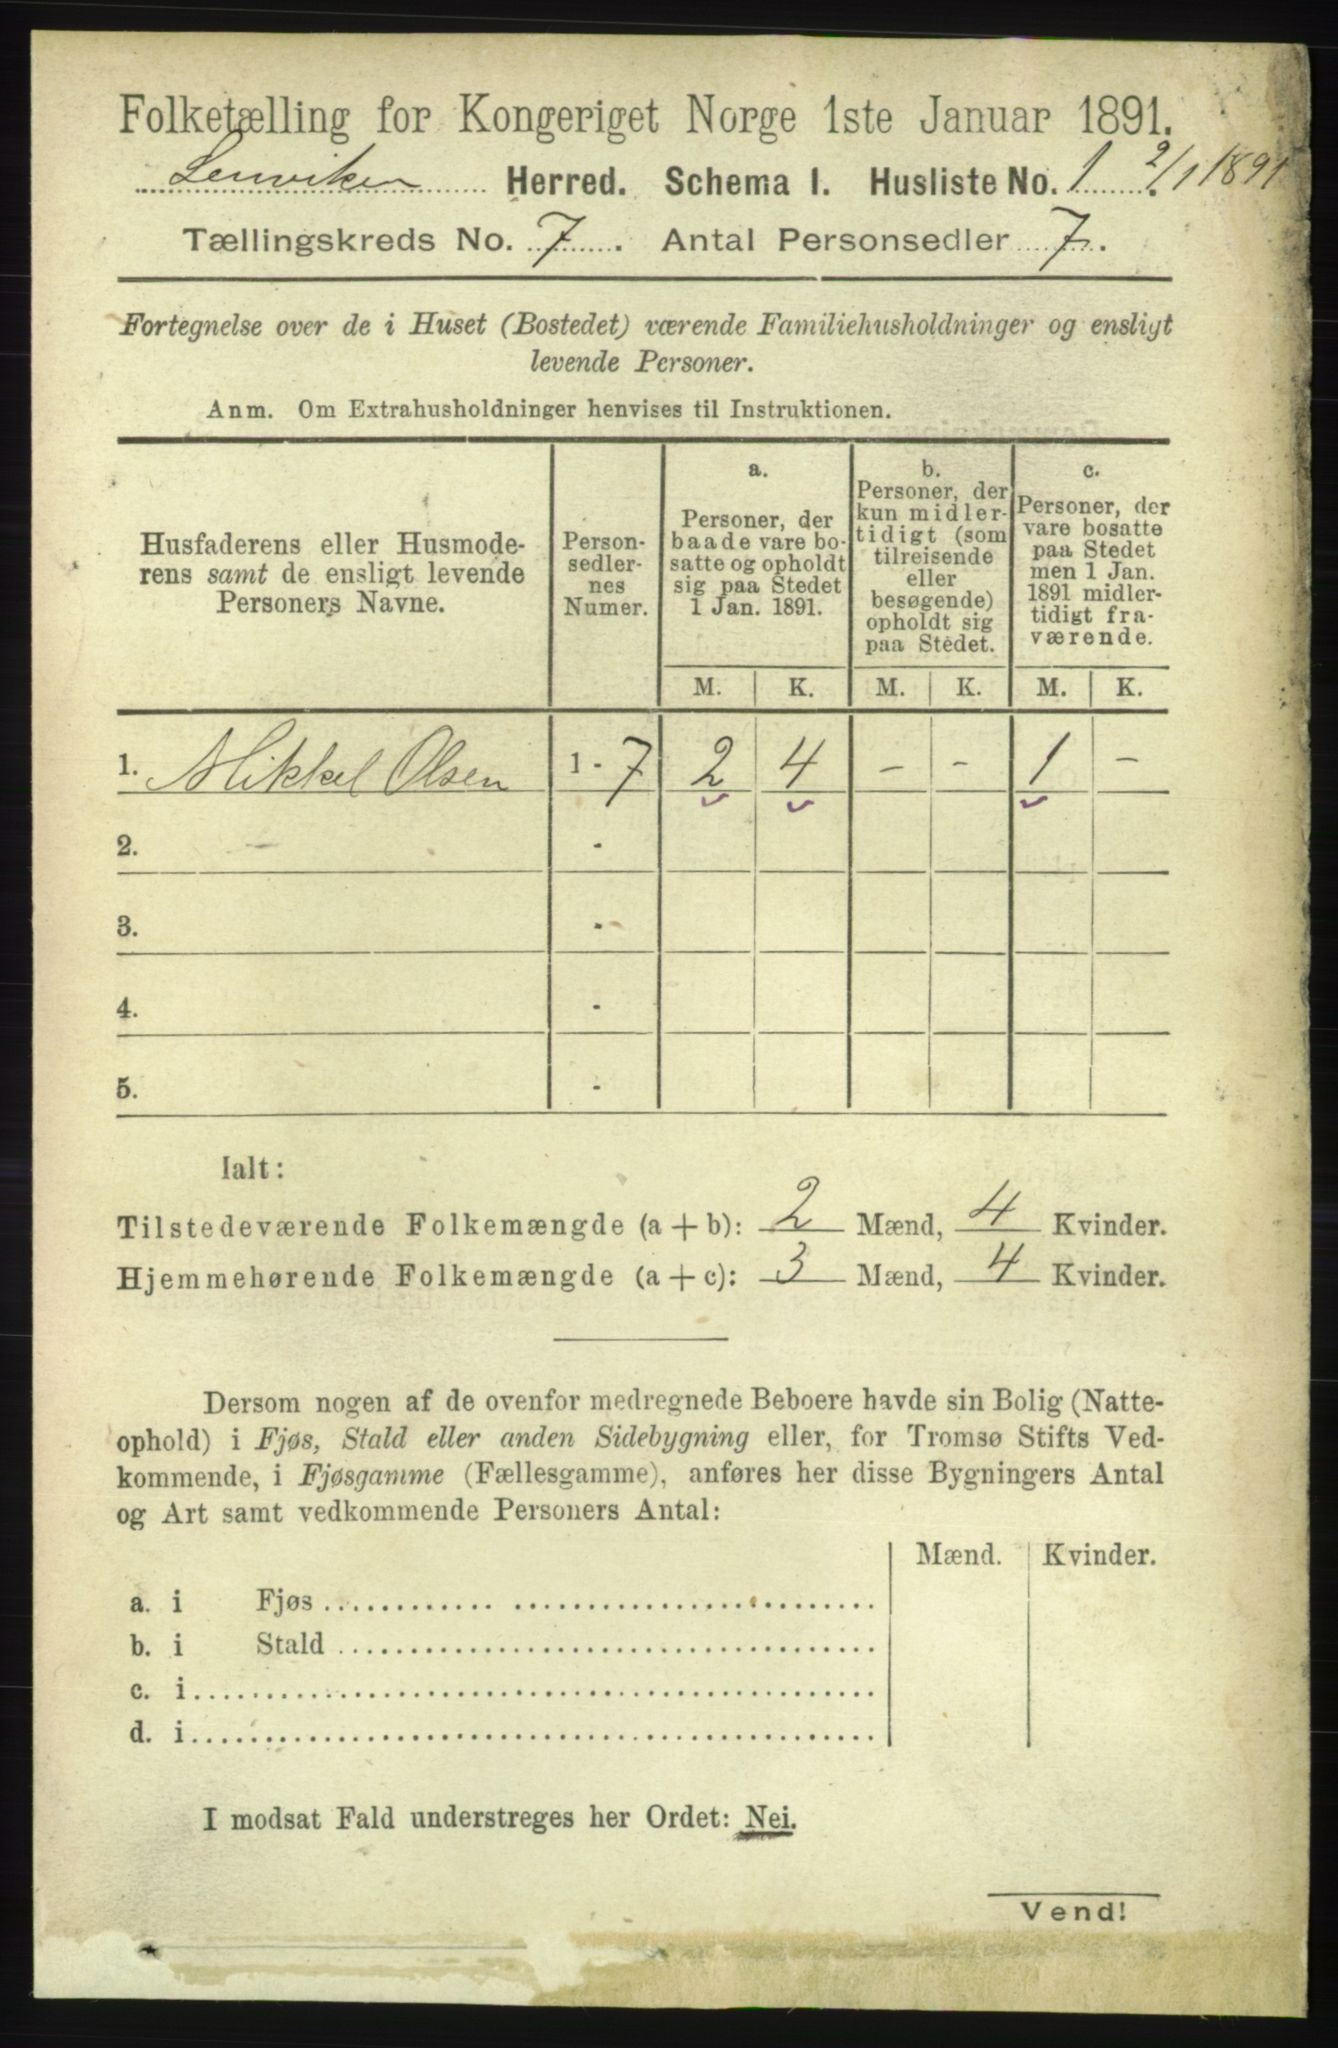 Folketælling for Kongeriget Norge 1ste Januar 1891.
Lenviken Herred. Schema I. Husliste No. 1. 2/1 1891
Tællingskreds No. 7. Antal Personsedler 7.
Fortegnelse over de i Huset (Bostedet) værende Familiehusholdninger og ensligt
levende Personer.
Anm. Om Extrahusholdninger henvises til Instruktionen.
Husfaderens eller Husmode-
rens samt de ensligt levende
Personers Navne.
Person-
sedler-
nes
Numer.
a.
Personer, der
baade vare bo-
satte og opholdt
sig paa Stedet
1 Jan. 1891.
b.
Personer, der
kun midler-
tidigt (som
tilreisende
eller
besøgende)
opholdt sig
paa Stedet.
c.
Personer, der
vare bosatte
paa Stedet
men 1 Jan.
1891 midler-
tidigt fra-
værende.
M. K. M. K. M. K.
1. Mikkel Olsen 1 - 7 2 4 - - 1 -
2. -
3. -
4. -
5. -
Ialt:
Tilstedeværende Folkemængde (a + b): 2 Mænd, 4 Kvinder.
Hjemmehørende Folkemængde (a + c): 3 Mænd, 4 Kvinder.
Dersom nogen af de ovenfor medregnede Beboere havde sin Bolig (Natte-
ophold) i Fjøs, Stald eller anden Sidebygning eller, for Tromsø Stifts Ved-
kommende, i Fjøsgamme (Fællesgamme), anføres her disse Bygningers Antal
og Art samt vedkommende Personers Antal:
Mænd. Kvinder.
a. i Fjøs
b. i Stald
c. i
d. i
I modsat Fald understreges her Ordet: Nei.
Vend!